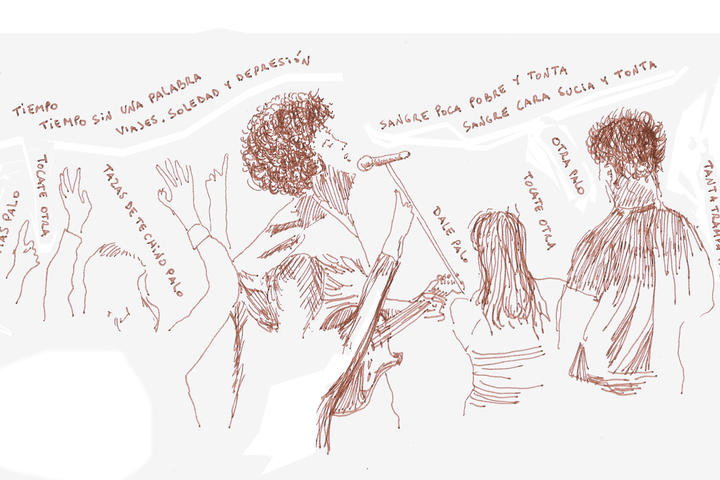 TIEMPO
TIEMPO SIN UNA PALABRA
VIAJES, SOLEDAD Y DEPRESIÓN
SANGRE POCA POBRE Y TONTA
SANGRE CARA SUCIA Y TONTA
PALO
TOCATE OTRA
TAZAS DE TE CHINO PALO
DALE PALO
TOCATE OTRA
OTRA PALO
TANTA